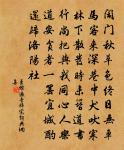 閑門秋草色終日無車
馬客來深巷中犬吠寒
林下散髮時未簪道書
行尚把與我同心人樂
道安貧者一罷宜城酌
還歸洛陽社
王維過李揖宅